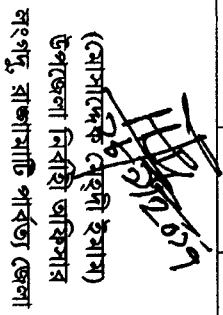 (মোসাদ্দেক মেহ্দী ইমাম)
উপজেলা নির্বাহী অফিসার
লংগদু রাঙ্গামাটি পার্বত্য জেলা